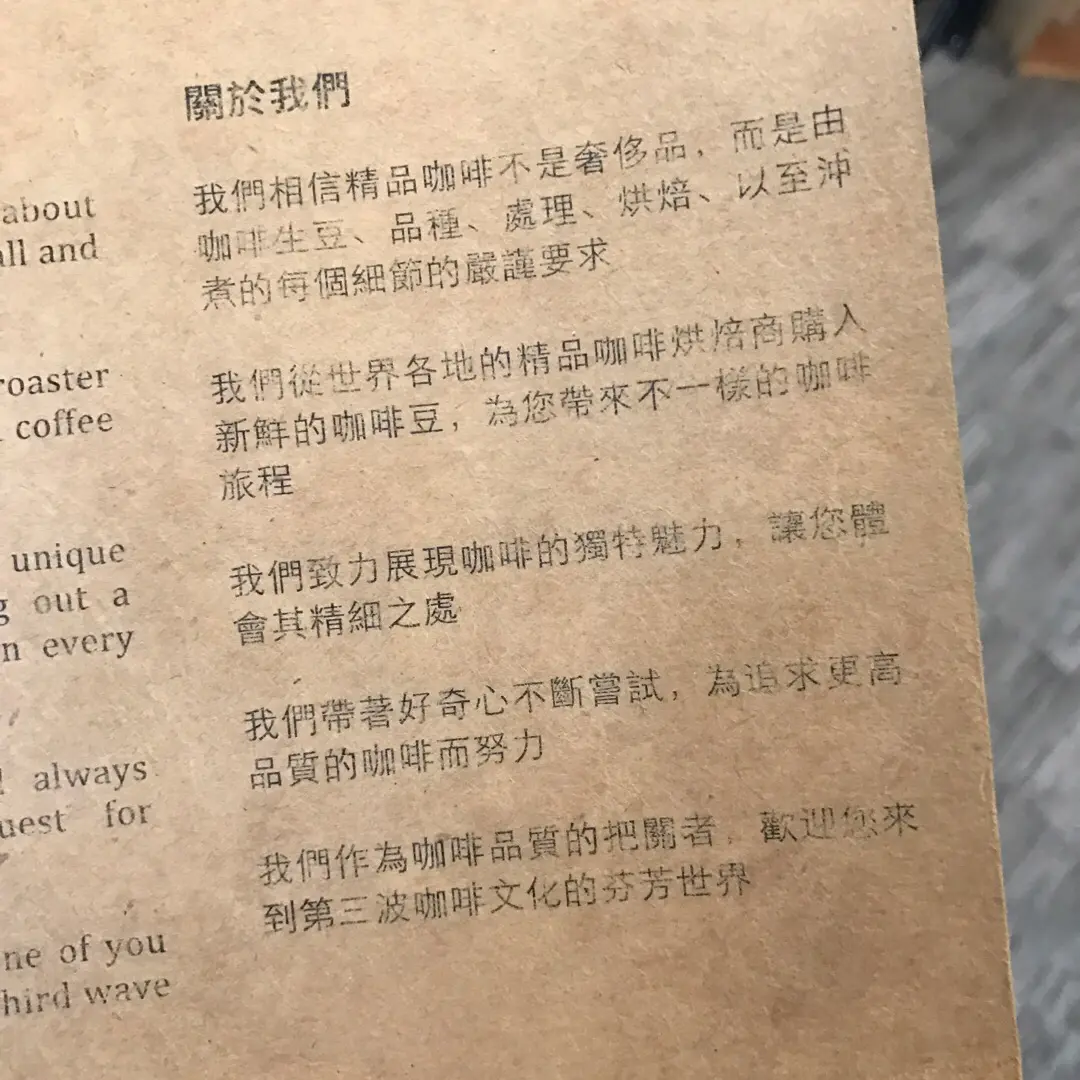 about
all and
roaster
coffee
unique
g out a
n every
always
uest for
ne of you
hird wave
關於我們
我們相信精品咖啡不是奢侈品，而是由
咖啡生豆、品種、處理、烘焙、以至沖
煮的每個細節的嚴謹要求
我們從世界各地的精品咖啡烘焙商購入
新鮮的咖啡豆，為您帶來不一樣的咖啡
旅程
我們致力展現咖啡的獨特魅力，讓您體
會其精細之處
我們帶著好奇心不斷嘗試，為追求更高
品質的咖啡而努力
我們作為咖啡品質的把關者，歡迎您來
到第三波咖啡文化的芬芳世界